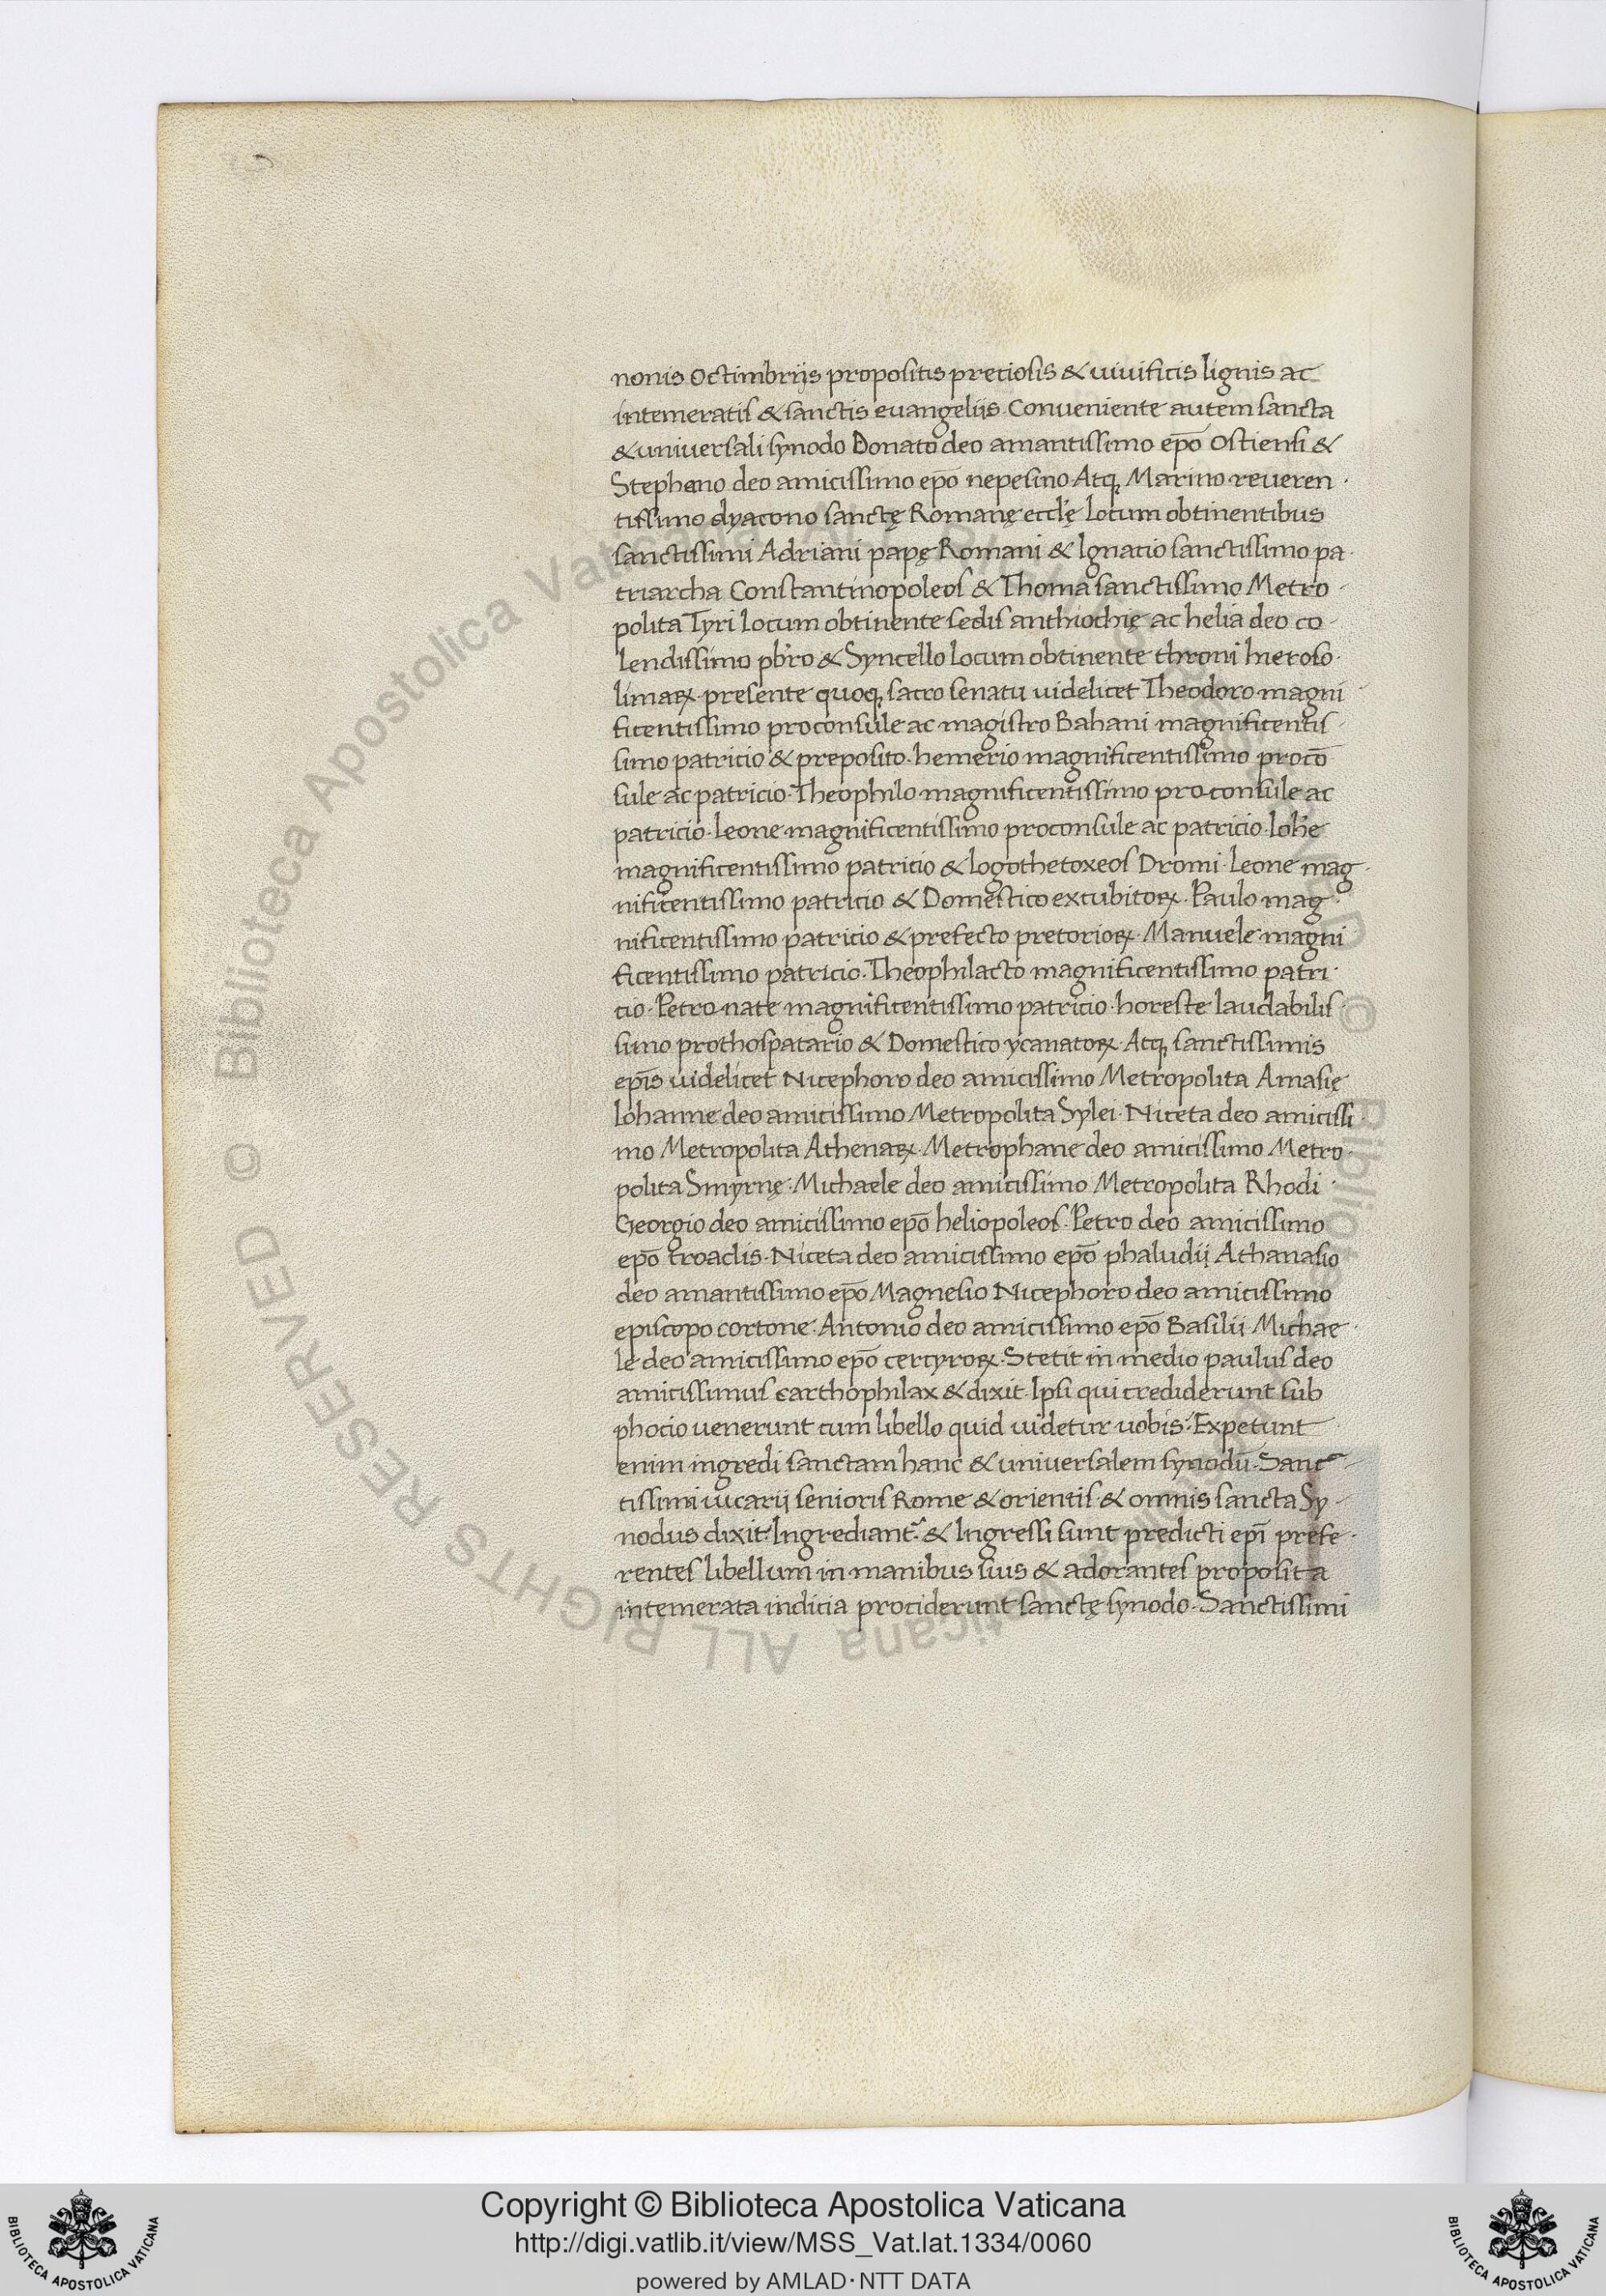 nonis Octimbrijs propositis pretiosis & uiuificis lignis ac
intemeratis & sanctis euangelijs· Conueniente autem sancta
& uniuersali synodo Donato deo amantissimo ep̄o Ostiensi &
Stephano deo amicissimo ep̄o nepesino Atq; Marino reueren·
tissimo dyacono sanctę Romanę eccl̄ę Locum obtinentibus
sanctissimi Adriani papę Romani & Ignatio sanctissimo pa·
triarcha Constantinopoleos & Thoma sanctissimo Metro·
polita Tyri locum obtinente sedis anthiochię ac helia deo co·
lendissimo pb̄ro & Syncello locum obtinente throni hieroso·
limaꝝ· presente quoq; sacro senatu uidelicet Theodoro magni·
ficentissimo proconsule ac magistro Bahani magnificentis·
simo patricio & preposito· hemerio magnificentissimo procō
sule ac patricio· Theophilo magnificentissimo proconsule ac
patricio· leone magnificentissimo proconsule ac patricio· Ioh̄e
magnificentissimo patricio & logothetoxeos Dromi· leone mag·
nificentissimo patricio & Domestico excubitoꝝ· Paulo mag·
nificentissimo patricio & prefecto pretorioꝝ· Manuele magni
ficentissimo patricio· Theophilacto magnificentissimo patri·
cio· Petronate magnificentissimo patricio· horeste laudabilis
simo prothospatario & Domestico ycanatoꝝ· Atq; sanctissimis
ep̄is uidelicet Nicephoro deo amicissimo Metropolita Amasię
Iohanne deo amicissimo Metropolita Sylei· Niceta deo amicissi·
mo Metropolita Athenaꝝ· Metrophane deo amicissimo Metro·
polita Smyrnę· Michaele deo amicissimo Metropolita Rhodi·
Georgio deo amicissimo ep̄o heliopoleos· Petro deo amicissimo
ep̄o troadis· Niceta deo amicissimo ep̄o phaludij Athanasio
deo amantissimo ep̄o Magnesio Nicephoro deo amicissimo
episcopo cortone· Antonio deo amicissimo ep̄o Basilii· Michae·
le deo amicissimo ep̄o cercyroꝝ· Stetit in medio paulus deo
amicissimus carthophilax & dixit· Ipsi qui crediderunt sub
photio uenerunt cum libello quid uidetur uobis· Expetunt
enim ingredi sanctam hanc & uniuersalem synodū· Sanc·
tissimi uicarij senioris Rome & orientis· & omnis sancta Sy·
nodus dixit· Ingrediant̃· & Ingressi sunt predicti ep̄i prefe·
rentes libellum in manibus suis & adorantes proposita
intemerata indicia prociderunt sanctę synodo· Sanctissimi
© Biblioteca Apostolica Vaticana ALL RIGHTS RESERVED
Copyright © Biblioteca Apostolica Vaticana
http://digi.vatlib.it/view/MSS_Vat.lat.1334/0060
powered by AMLAD·NTT DATA
BIBLIOTECA APOSTOLICA VATICANA
BIBLIOTECA APOSTOLICA VATICANA